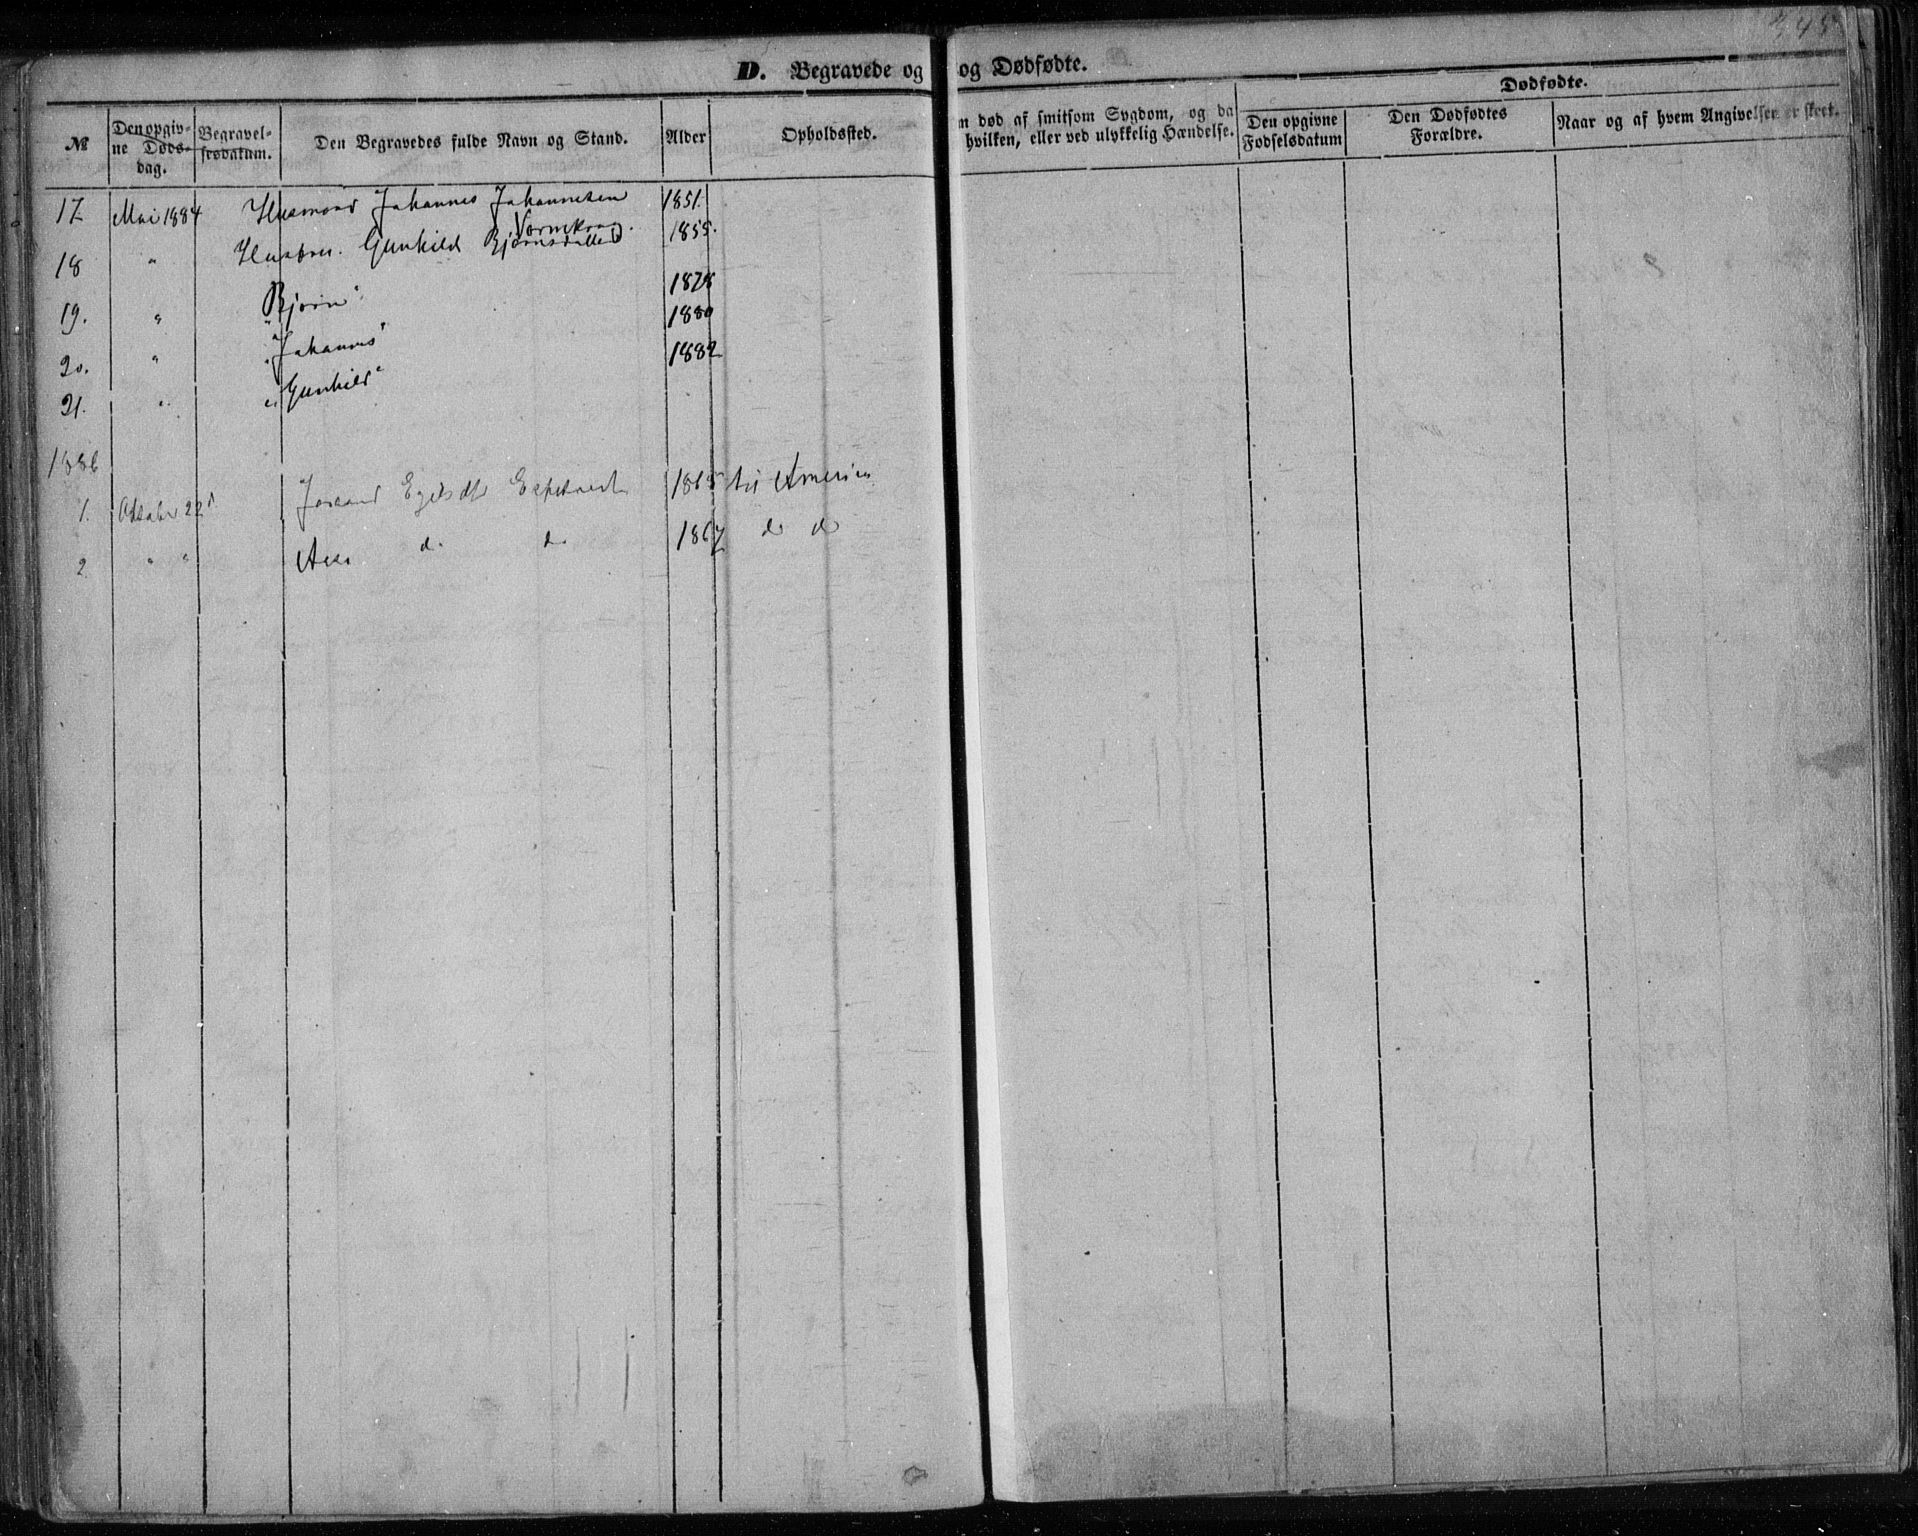 345
D. Begravede og
og Dødfødte.
№
Den opgivne Dødsdag.
Begravelsesdatum.
Den Begravedes fulde Navn og Stand.
Alder
Opholdssted.
m død af smitsom Sygdom, og da
hvilken, eller ved ulykkelig Hændelse.
Dødfødte.
Den opgivne Fødselsdatum
Den Dødfødtes Forældre.
Naar og af hvem Angivelsen er skeet.
17 Mai 1884 Husmand Johannes Johannesen 1851.
18 " Hustru. Gunhild Bjørnsdatter 1855.
19. " "Bjørn" 1878
20. " "Johannes" 1880
21. " "Gunhild" 1882
1886
1. Octobr 22d Egilsdtr 1865 til America
2 " " Aase d. d. 1867 d d